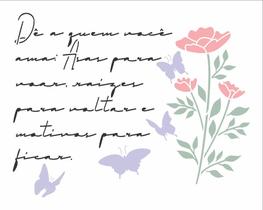 Dê a quem você
ama: Asas para
voar, raízes
para voltar e
motivos para
ficar.